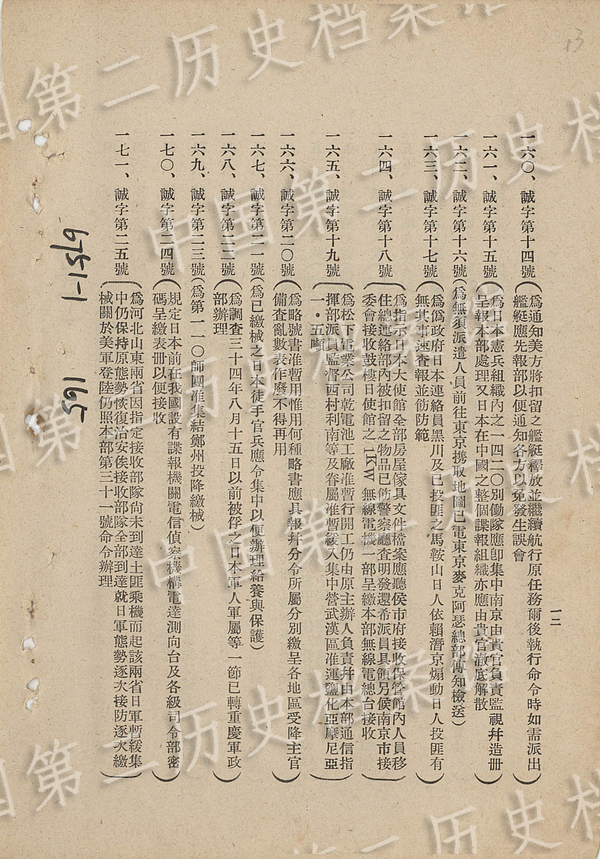 13
一二
一六〇、誠字第十四號（為通知美方將扣留之艦艇釋放並繼續航行原任務爾後執行命令時如需派出
艦艇應先報部以便通知各方以免發生誤會）
一六一、誠字第十五號（為日本憲兵組織內之一四二〇別働隊應即集中南京由貴官負責監視幷造冊
呈報本部處理又日本在中國之整個諜報組織亦應由貴官澈底解散）
一六二、誠字第十六號（為無須派遣人員前往東京攜取地圖已電東京麥克阿瑟總部傳知檢送）
一六三、誠字第十七號（為偽政府日本連絡員黑川及已投匪之馬鞍山日人依賴潛京煽動日人投匪有
無其事速查報並仿防範）
一六四、誠字第十八號（為指示日本大使館全部房屋傢具文件檔案應聽侯市府接收保管館內人員移
住總連絡部內被扣留之物品已飭警察廳查明發還希派員具領另候南京市接
委會接收鼓樓日使館之1KW無線電機一部呈繳本部無線電總台接收）
一六五、誠字第十九號（為松下近業公司乾電池工廠准暫行開工仍由原主辦人負責幷由本部通信指
揮部派員監督西村利南等及眷屬准暫緩入集中營武漢區准運鹽化亞摩尼亞
一・五噸）
一六六、誠字第二〇號（為略號書准暫用惟用何種略書應具報幷分令所屬分別繳呈各地區受降主官
備查亂數表作廢不得再用）
一六七、誠字第二一號（為已繳械之日本徒手官兵應令集中以便辦理給養與保護）
一六八、誠字第二二號（為調查三十四年八月十五日以前被俘之日本軍人軍屬等一節已轉重慶軍政
部辦理）
一六九、誠字第二三號（為第一一〇師團准集結鄭州投降繳械）
一七〇、誠字第二四號（規定日本前在我國設有諜報機關電信偵察機構電達測向台及各級司令部密
碼呈繳表冊以便接收）
一七一、誠字第二五號（為河北山東兩省因指定接收部隊尚未到達土匪乘機而起該兩省日軍暫緩集
中仍保持原態勢恢復治安俟接收部隊全部到達就日軍態勢逐次接防逐次繳
械關於美軍登陸仍照本部第三十一號命令辦理）
中国第二历史档案馆